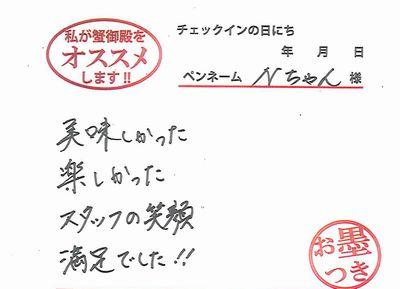 私が蟹御殿を
オススメ
します!!
チェックインの日にち
年 月 日
ペンネーム Nちゃん 様
美味しかった
楽しかった
スタッフの笑顔
満足でした!!
お墨
つき